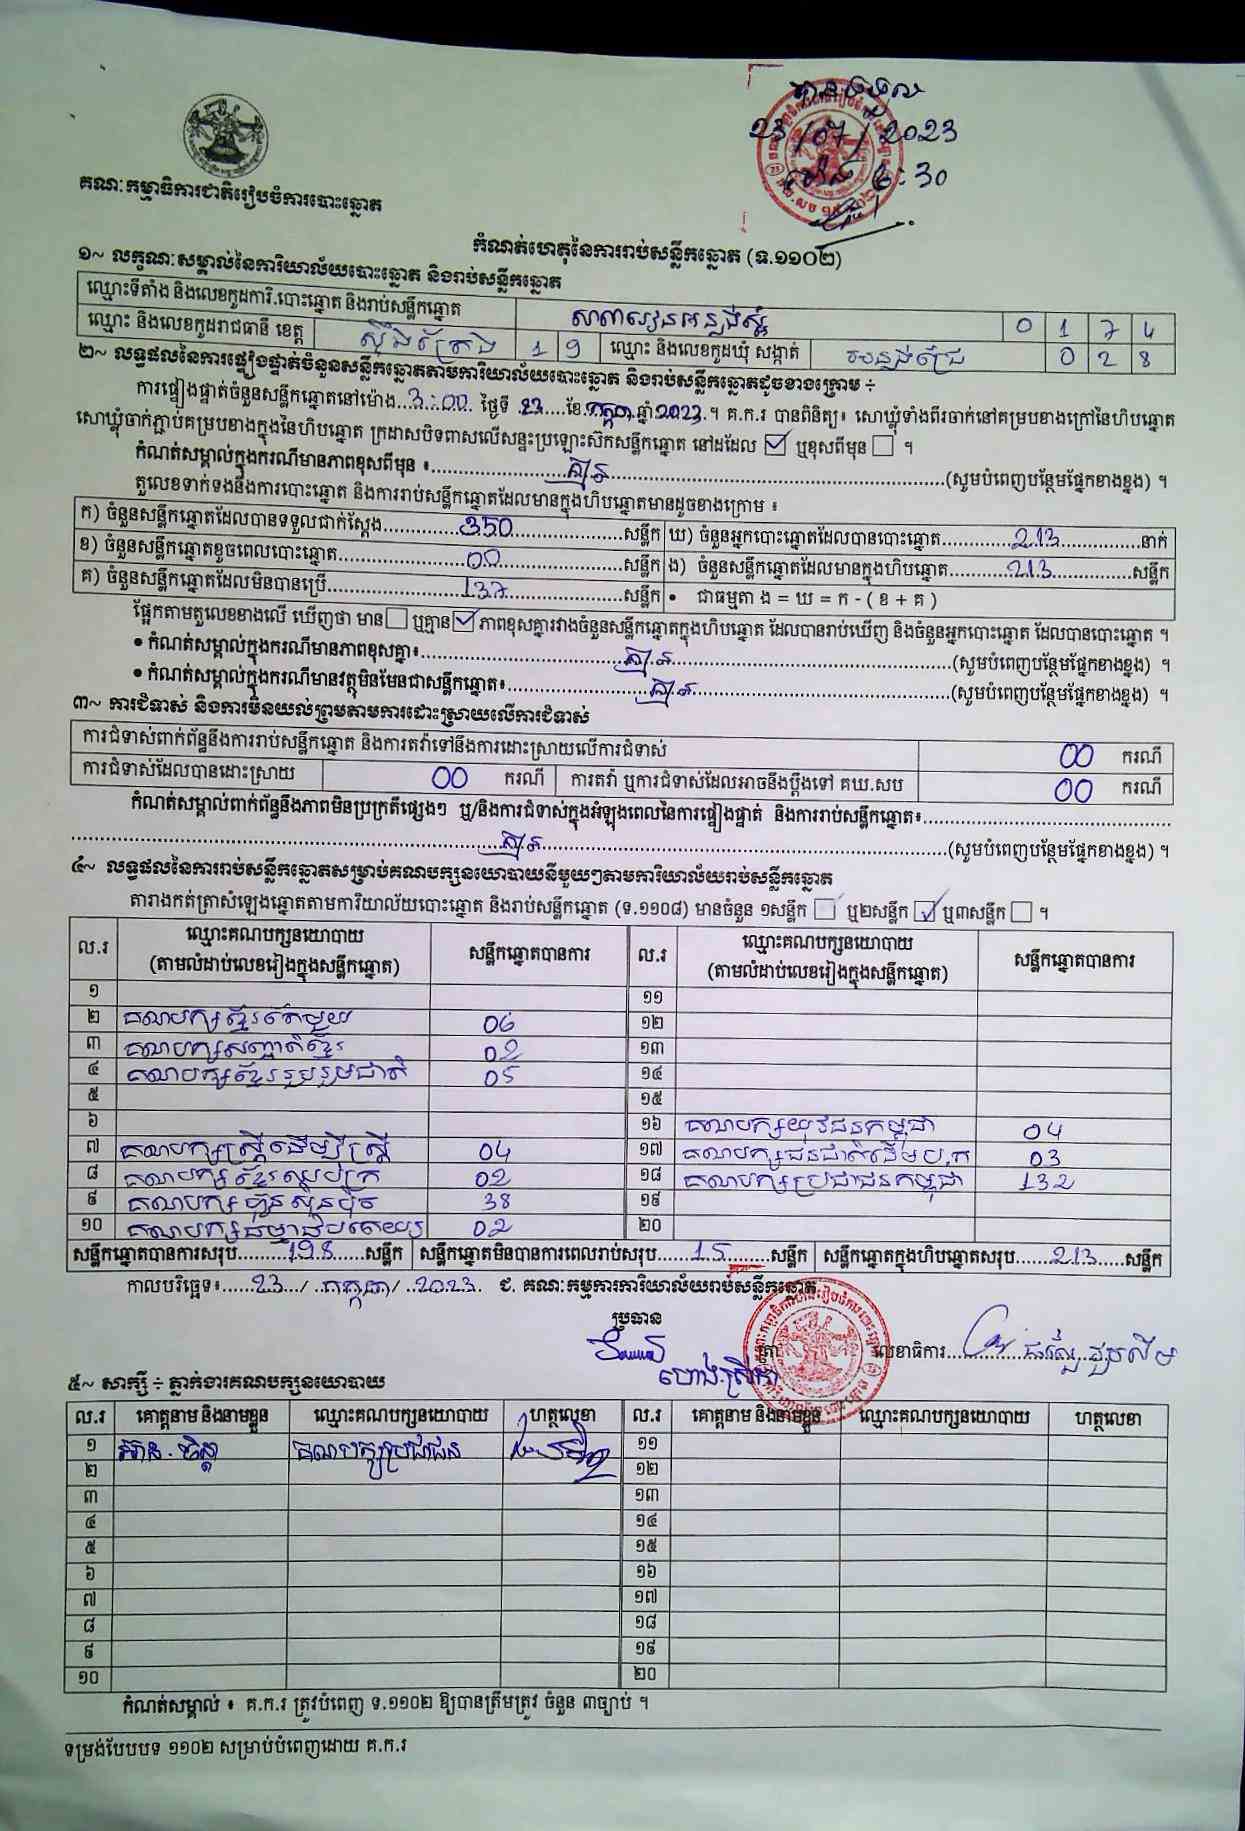 បានទទួល
23/07/2023
ម៉ោង ៤:30
គណៈកម្មាធិការជាតិរៀបចំការបោះឆ្នោត
កំណត់ហេតុនៃការរាប់សន្លឹកឆ្នោត (ទ.១១០២)
១~ លក្ខណៈសម្គាល់នៃការិយាល័យបោះឆ្នោត និងរាប់សន្លឹកឆ្នោត
ឈ្មោះទីតាំង និងលេខកូដការិ.បោះឆ្នោត និងរាប់សន្លឹកឆ្នោត 0 1 7 4
ឈ្មោះ និងលេខកូដរាជធានី ខេត្ត ស្ទឹងត្រែង 1 9 ឈ្មោះ និងលេខកូដឃុំ សង្កាត់ អន្លង់ជ្រៃ 0 2 8
២~ លទ្ធផលនៃការផ្ទៀងផ្ទាត់ចំនួនសន្លឹកឆ្នោតតាមការិយាល័យបោះឆ្នោត និងរាប់សន្លឹកឆ្នោតដូចខាងក្រោម ÷
ការផ្ទៀងផ្ទាត់ចំនួនសន្លឹកឆ្នោតនៅម៉ោង...3:00 ថ្ងៃទី 23 ខែ កក្កដា ឆ្នាំ 2023 ។ គ.ក.រ បានពិនិត្យ៖ សោឃ្លុំទាំងពីរចាក់នៅគម្របខាងក្រៅនៃហិបឆ្នោត
សោឃ្លុំចាក់ភ្ជាប់គម្របខាងក្នុងនៃហិបឆ្នោត ក្រដាសបិទពាសលើសន្ទះប្រឡោះស៊កសន្លឹកឆ្នោត នៅដដែល ☑ ឬខុសពីមុន ☐ ។
កំណត់សម្គាល់ក្នុងករណីមានភាពខុសពីមុន ៖ គ្មាន (សូមបំពេញបន្ថែមផ្នែកខាងខ្នង) ។
តួលេខទាក់ទងនឹងការបោះឆ្នោត និងការរាប់សន្លឹកឆ្នោតដែលមានក្នុងហិបឆ្នោតមានដូចខាងក្រោម ៖
ក) ចំនួនសន្លឹកឆ្នោតដែលបានទទួលជាក់ស្តែង 350 សន្លឹក ឃ) ចំនួនអ្នកបោះឆ្នោតដែលបានបោះឆ្នោត 213 នាក់
ខ) ចំនួនសន្លឹកឆ្នោតខូចពេលបោះឆ្នោត 00 សន្លឹក ង) ចំនួនសន្លឹកឆ្នោតដែលមានក្នុងហិបឆ្នោត 213 សន្លឹក
គ) ចំនួនសន្លឹកឆ្នោតដែលមិនបានប្រើ 137 សន្លឹក • ជាធម្មតា ង = ឃ = ក - ( ខ + គ )
ផ្អែកតាមតួលេខខាងលើ ឃើញថា មាន ☐ ឬគ្មាន ☑ ភាពខុសគ្នារវាងចំនួនសន្លឹកឆ្នោតក្នុងហិបឆ្នោត ដែលបានរាប់ឃើញ និងចំនួនអ្នកបោះឆ្នោត ដែលបានបោះឆ្នោត ។
• កំណត់សម្គាល់ក្នុងករណីមានភាពខុសគ្នា៖ គ្មាន (សូមបំពេញបន្ថែមផ្នែកខាងខ្នង) ។
• កំណត់សម្គាល់ក្នុងករណីមានវត្ថុមិនមែនជាសន្លឹកឆ្នោត៖ គ្មាន (សូមបំពេញបន្ថែមផ្នែកខាងខ្នង) ។
៣~ ការជំទាស់ និងការមិនយល់ព្រមតាមការដោះស្រាយលើការជំទាស់
ការជំទាស់ពាក់ព័ន្ធនឹងការរាប់សន្លឹកឆ្នោត និងការតវ៉ាទៅនឹងការដោះស្រាយលើការជំទាស់ 00 ករណី
ការជំទាស់ដែលបានដោះស្រាយ 00 ករណី ការតវ៉ា ឬការជំទាស់ដែលអាចនឹងប្តឹងទៅ គឃ.សប 00 ករណី
កំណត់សម្គាល់ពាក់ព័ន្ធនឹងភាពមិនប្រក្រតីផ្សេងៗ ឬ/និងការជំទាស់ក្នុងអំឡុងពេលនៃការផ្ទៀងផ្ទាត់ និងការរាប់សន្លឹកឆ្នោត៖
គ្មាន (សូមបំពេញបន្ថែមផ្នែកខាងខ្នង) ។
៤~ លទ្ធផលនៃការរាប់សន្លឹកឆ្នោតសម្រាប់គណបក្សនយោបាយនីមួយៗតាមការិយាល័យរាប់សន្លឹកឆ្នោត
តារាងកត់ត្រាសំឡេងឆ្នោតតាមការិយាល័យបោះឆ្នោត និងរាប់សន្លឹកឆ្នោត (ទ.១១០៨) មានចំនួន ១សន្លឹក ☐ ឬ២សន្លឹក ☑ ឬ៣សន្លឹក ☐ ។
ល.រ ឈ្មោះគណបក្សនយោបាយ (តាមលំដាប់លេខរៀងក្នុងសន្លឹកឆ្នោត) សន្លឹកឆ្នោតបានការ ល.រ ឈ្មោះគណបក្សនយោបាយ (តាមលំដាប់លេខរៀងក្នុងសន្លឹកឆ្នោត) សន្លឹកឆ្នោតបានការ
១ ១១
២ គណបក្សខ្មែរតែមួយ 06 ១២
៣ គណបក្សសញ្ជាតិខ្មែរ 02 ១៣
៤ គណបក្សខ្មែររួបរួមជាតិ 05 ១៤
៥ ១៥
៦ ១៦ គណបក្សយុវជនកម្ពុជា 04
៧ គណបក្សស្ត្រីដើម្បីស្ត្រី 04 ១៧ គណបក្សជនជាតិដើមប.ក 03
៨ គណបក្សខ្មែរឈប់ក្រ 02 ១៨ គណបក្សប្រជាជនកម្ពុជា 132
៩ គណបក្សហ៊្វុនស៊ិនប៉ិច 38 ១៩
១០ គណបក្សធម្មាធិបតេយ្យ 02 ២០
សន្លឹកឆ្នោតបានការសរុប 198 សន្លឹក សន្លឹកឆ្នោតមិនបានការពេលរាប់សរុប 15 សន្លឹក សន្លឹកឆ្នោតក្នុងហិបឆ្នោតសរុប 213 សន្លឹក
កាលបរិច្ឆេទ៖ 23 / កក្កដា / 2023 ជ. គណៈកម្មការការិយាល័យរាប់សន្លឹកឆ្នោត
ប្រធាន
លេខាធិការ
៥~ សាក្សី ÷ ភ្នាក់ងារគណបក្សនយោបាយ
ល.រ គោត្តនាម និងនាមខ្លួន ឈ្មោះគណបក្សនយោបាយ ហត្ថលេខា ល.រ គោត្តនាម និងនាមខ្លួន ឈ្មោះគណបក្សនយោបាយ ហត្ថលេខា
១ គណបក្សប្រជាជន ១១
២ ១២
៣ ១៣
៤ ១៤
៥ ១៥
៦ ១៦
៧ ១៧
៨ ១៨
៩ ១៩
១០ ២០
កំណត់សម្គាល់ ៖ គ.ក.រ ត្រូវបំពេញ ទ.១១០២ ឱ្យបានត្រឹមត្រូវ ចំនួន ៣ច្បាប់ ។
ទម្រង់បែបបទ ១១០២ សម្រាប់បំពេញដោយ គ.ក.រ